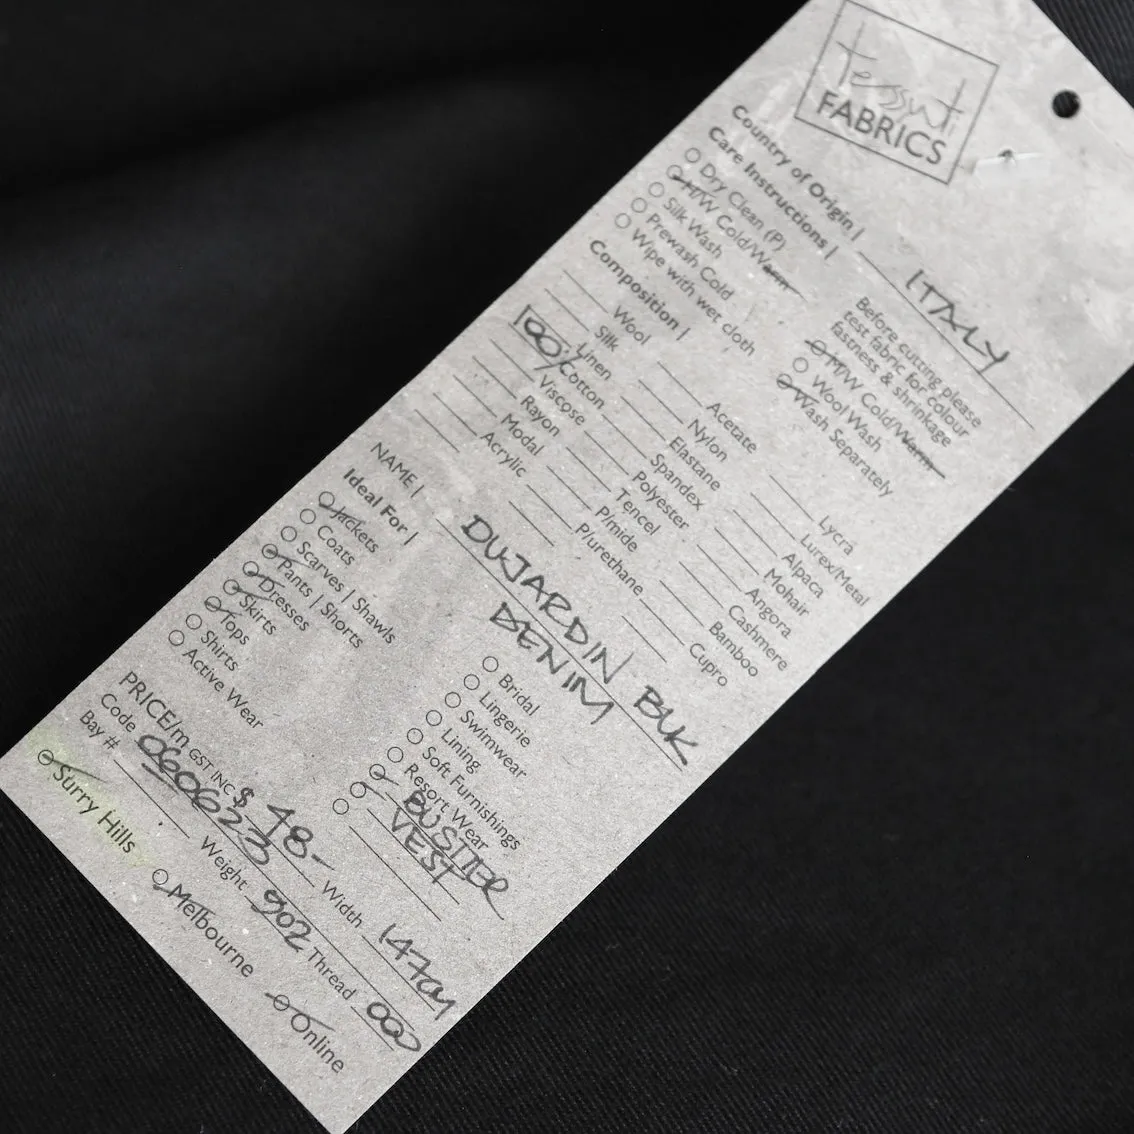 Tessuti
FABRICS
Country of Origin | ITALY
Care Instructions |
Dry Clean (P)
H/W Cold/Warm
Silk Wash
Prewash Cold
Wipe with wet cloth
Before cutting please
test fabric for colour
fastness & shrinkage
M/W Cold/Warm
Wool Wash
Wash Separately
Composition |
Wool
Silk
Linen
100% Cotton
Viscose
Rayon
Modal
Acrylic
Acetate
Nylon
Elastane
Spandex
Polyester
Tencel
P/mide
P/urethane
Lycra
Lurex/Metal
Alpaca
Mohair
Angora
Cashmere
Bamboo
Cupro
NAME | DUJARDIN BLK
DENIM
Ideal For |
Jackets
Coats
Scarves | Shawls
Pants | Shorts
Dresses
Skirts
Tops
Shirts
Active Wear
Bridal
Lingerie
Swimwear
Lining
Soft Furnishings
Resort Wear
BUSTIER
VEST
PRICE/m GST INC $ 48- Width 147cm
Code 060623 Weight 9oz Thread 000
Bay #
Surry Hills
Melbourne
Online